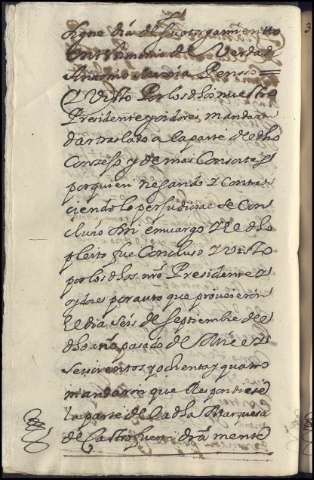 signo día de su otorgamiento
en testimonio de Verdad
Antonio Garcia
Visto Por los dhos nuestro
Presidente y oidores, mandaron
dar traslado a la parte del dho
Conzejo y demas Consortes
por quien negando y Contra
diciendo lo perjudicial se Con
cluió sin embargo y el dho
pleito fue Concluso y visto
por los dhos nro Presidente y
oydores por auto que proueieron
el dia seis de septiembre de
dho año pasado de mil
seiscientos y ochenta y quatro
mandaron que respondiese
la parte de la dha Marquesa
de Castrofuerte